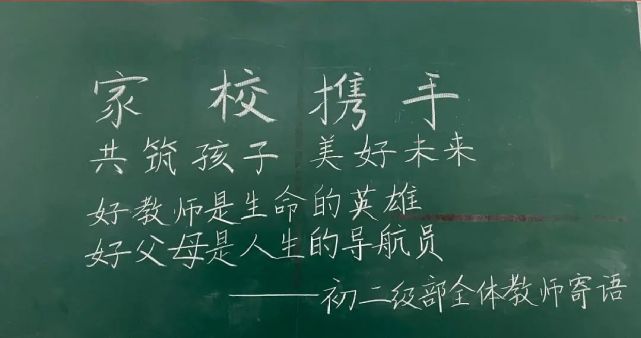 家 校 携 手
共筑孩子 美好未来
好教师是生命的英雄
好父母是人生的导航员
——初二级部全体教师寄语